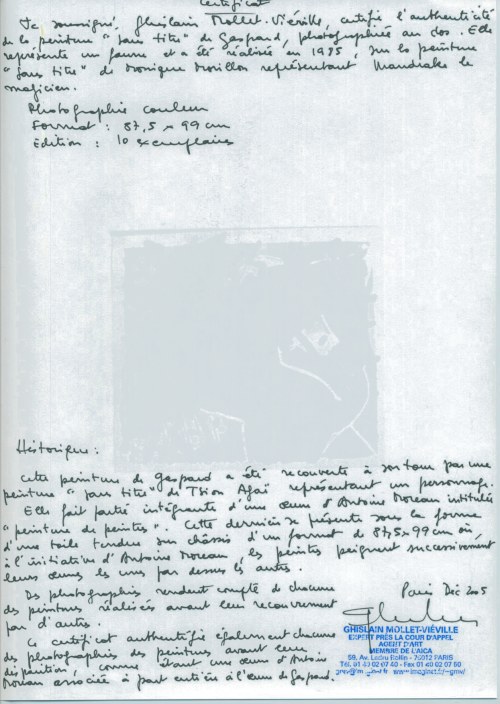 Certificat
Je soussigné, Ghislain Mollet-Viéville, certifie l'authenticité
de la peinture "sans titre" de Gaspard, photographiée au dos. Elle
représente un fauve et a été réalisée en 1985, sur la peinture
"sans titre" de Monique Morillon représentant Mandrake le
magicien.
Photographie couleur
Format : 87,5 x 99 cm
Edition : 10 exemplaires
Historique :
Cette peinture de Gaspard a été recouverte à son tour par une
peinture "sans titre" de Tsion représentant un personnage.
Elle fait partie intégrante d'une œuvre d'Antoine Moreau intitulée
"peinture de peintres". Cette dernière se présente sous la forme
d'une toile tendue sur châssis d'un format de 87,5x99 cm où,
à l'initiative d'Antoine Moreau, les peintres peignent successivement
leurs œuvres les uns par dessus les autres.
Des photographies rendent compte de chacune
des peintures réalisées avant leur recouvrement
par d'autres.
Paris Déc 2005
Ce certificat authentifie également chacune
des photographies des peintures avant leur
disparition, comme étant une œuvre d'Antoine
Moreau associée à part entière à l'œuvre de Gaspard.
GHISLAIN MOLLET-VIÉVILLE
EXPERT PRÈS LA COUR D'APPEL
AGENT D'ART
MEMBRE DE L'AICA
59, Av. Ledru Rollin - 75012 PARIS
Tél. 01 40 02 07 40 - Fax 01 40 02 07 50